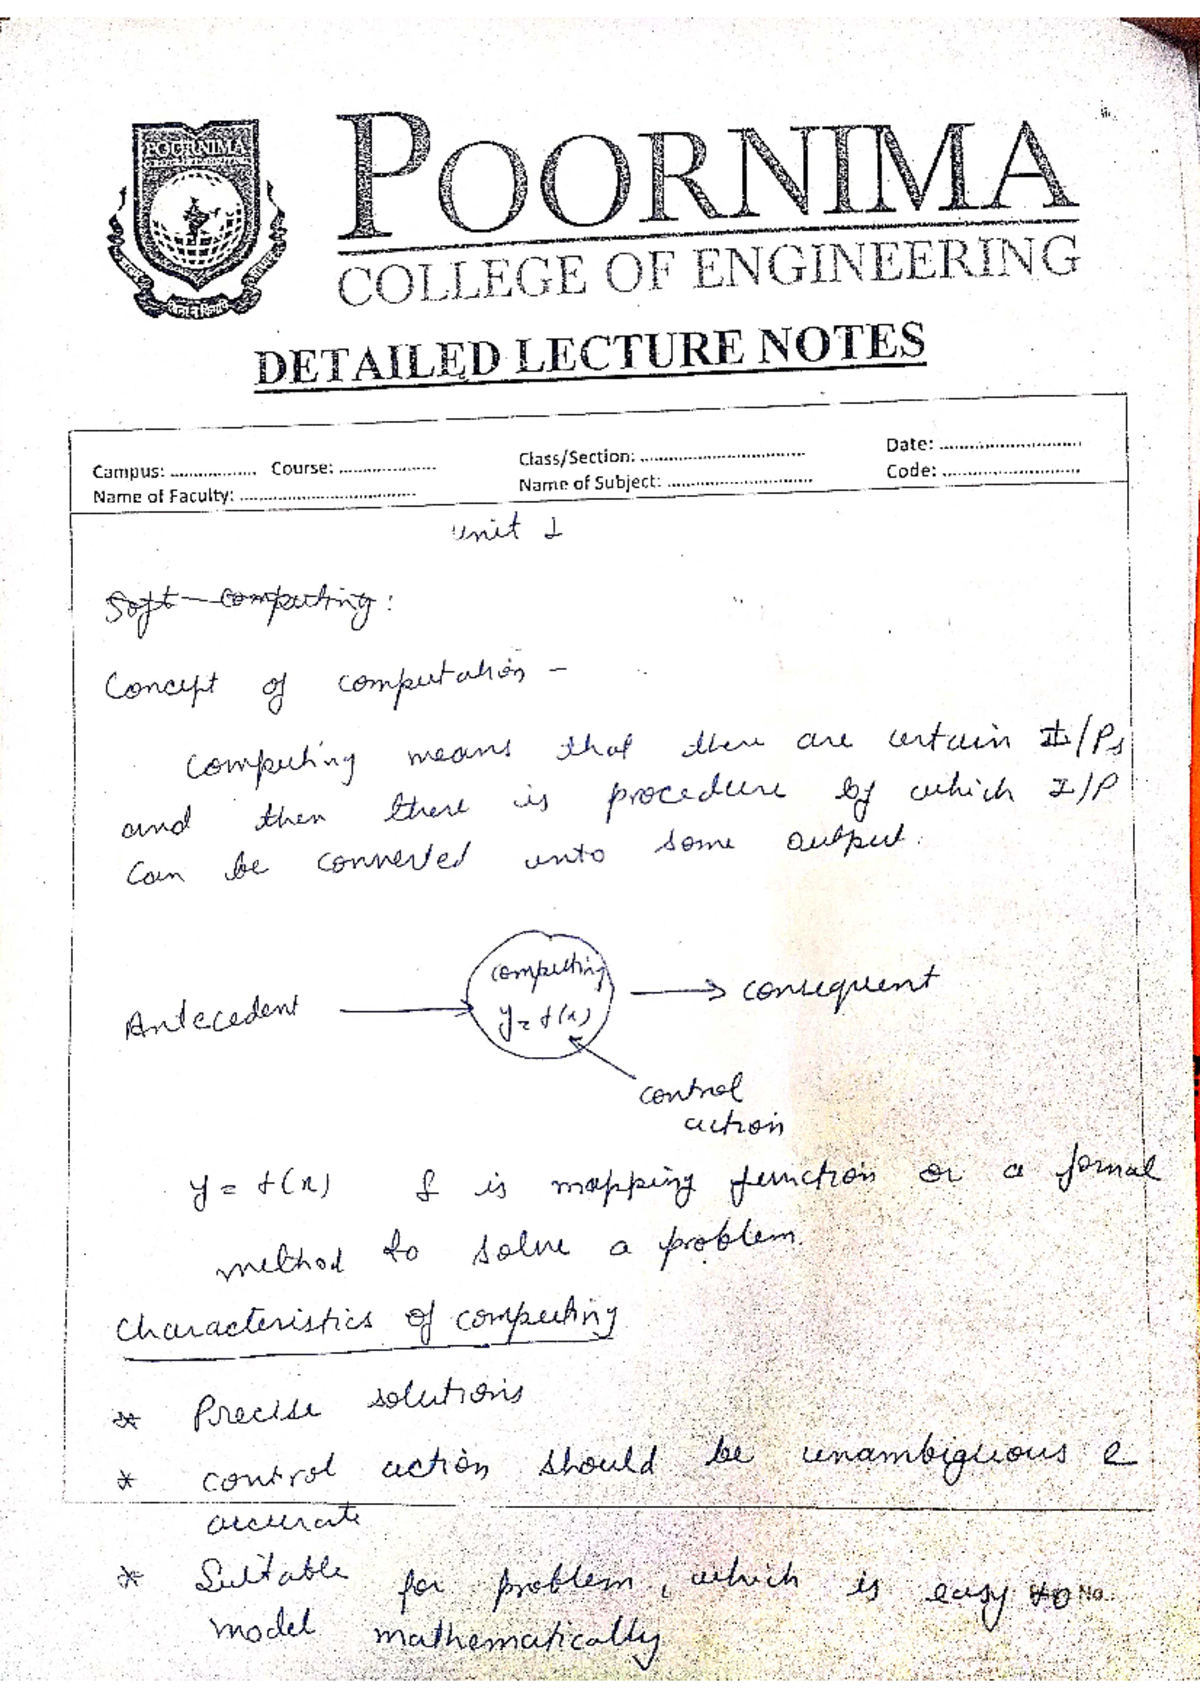 POORNIMA
POORNIMA
COLLEGE OF ENGINEERING
DETAILED LECTURE NOTES
Campus: ................. Course: ...................
Class/Section: ................................
Date: ............................
Name of Faculty: ...................................
Name of Subject: .............................
Code: ...........................
Unit I
Soft-Computing:
Concept of computation -
Computing means that there are certain I/Ps
and then there is procedure by which I/P
can be converted unto some output.
computing
y = f(x)
Antecedent
consequent
control
action
y = f(x) f is mapping function or a formal
method to solve a problem.
Characteristics of computing
* Precise solutions
* control action should be unambiguous &
accurate
* Suitable for problem, which is easy to No..
model mathematically